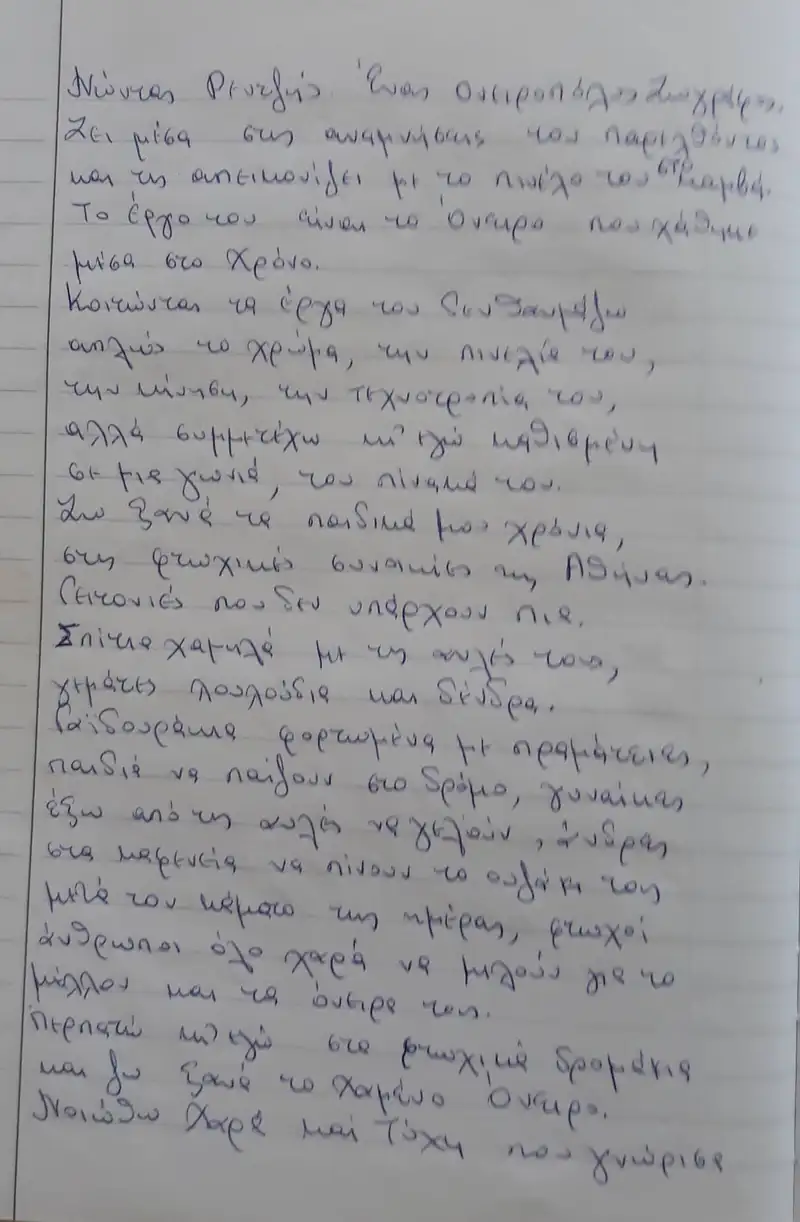 Νώντας Ρεντζής. Ένας ονειροπόλος ζωγράφος.
Ζει μέσα στις αναμνήσεις του παρελθόντος
και τις απεικονίζει με το πινέλο του στο καμβά.
Το έργο του είναι το Όνειρο που χάθηκε
μέσα στο χρόνο.
Κοιτώντας τα έργα του δεν θαυμάζω
απλώς το χρώμα, την πινελιά του,
την κίνηση, την τεχνοτροπία του,
αλλά συμμετέχω κι' εγώ καθισμένη
σε μια γωνιά, του πίνακά του.
Ζω ξανά τα παιδικά μου χρόνια,
στις φτωχικές συνοικίες της Αθήνας.
Γειτονιές που δεν υπάρχουν πια.
Σπίτια χαμηλά με τις αυλές τους,
γεμάτες λουλούδια και δένδρα.
Γαϊδουράκια φορτωμένα με πραμάτειας,
παιδιά να παίζουν στο δρόμο, γυναίκες
έξω από τις αυλές να γελούν, άνδρες
στα καφενεία να πίνουν το ουζάκι τους
μετά τον κάματο της ημέρας, φτωχοί
άνθρωποι όλο χαρά να μιλούν για το
μέλλον και τα όνειρα τους.
Περπατώ κι' εγώ στα φτωχικά δρομάκια
και ζω ξανά το χαμένο Όνειρο.
Νοιώθω Χαρά και Τύχη που γνώρισα